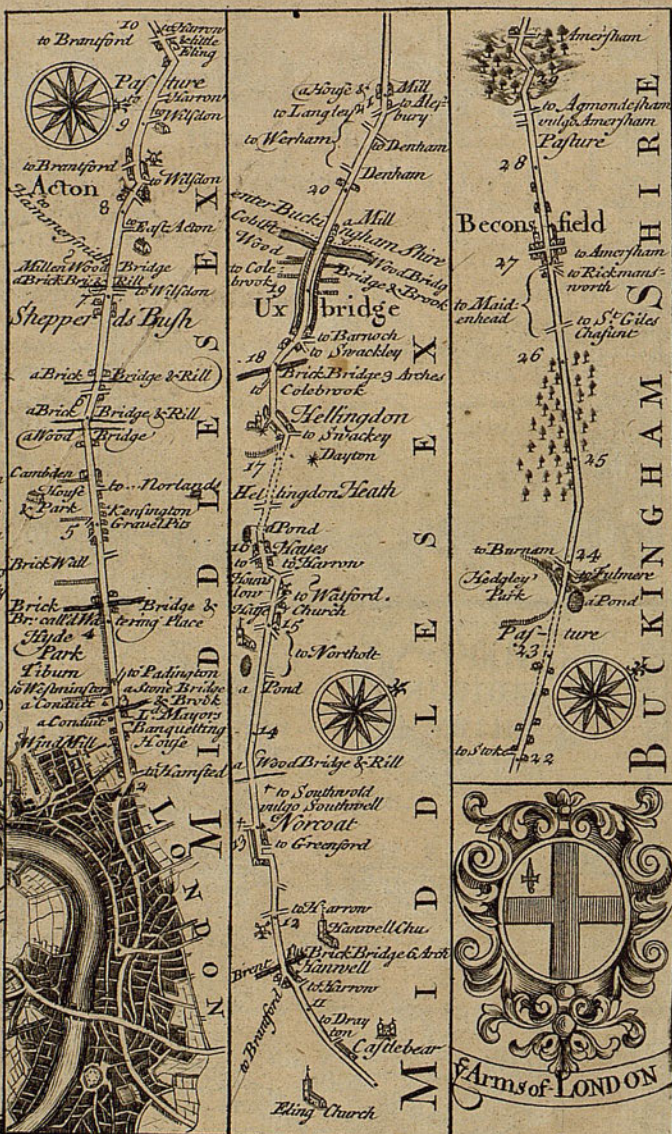 10
to Harrow
to Brantford
& little
Eling
Pasture
to Harrow
9
to Wilsdon
to Brantford
Acton
to Wilsdon
8
to Hammersmith
to East Acton
Millen Wood Bridge
a Brick Bri & Rill
to Wilsdon
7
Shepperds Bush
a Brick Bridge & Rill
a Brick Bridge & Rill
a Wood Bridge
Cambden
House
& Park
to Norlands
Kensington
Gravel Pits
5
Brick Wall
Brick Bridge &
Br: call'd Watering Place
Hyde 4
Park
Tiburn
to Padington
to Westminster
a Stone Bridge
& Brook
a Conduit
3
a Conduit
Ld. Mayors
Banquetting
House
Wind Mill
to Hamsted
2
LONDON
MIDDLESEX
a House & Mill
to Langley
21
to Alesbury
to Werham
to Denham
20
Denham
a Mill
enter Buckingham Shire
Wood
Wood Bridg
to Colebrook
Bridge & Brook
19
Uxbridge
to Barnoch
to Swackley
18
Brick Bridge 3 Arches
to
Colebrook
Hellingdon
to Swackey
17
Dayton
Hellingdon Heath
a Pond
16
Hayes
to Harrow
to Watford
Church
15
to Northolt
a Pond
14
a Wood Bridge & Rill
to Southwold
vulgo Southwell
Norcoat
13
to Greenford
to Harrow
12
Hanwell Chu
Brick Bridge 6 Arch
Brent
Hanwell
to Harrow
11
to Brantford
to Drayton
Castlebear
Eling Church
MIDDLESEX
Amersham
29
to Agmondesham
vulgo Amersham
Pasture
28
Beconsfield
27
to Amersham
to Rickmansworth
to Maidenhead
to St. Giles
Chafunt
26
25
to Burnam
24
Hedgley
Park
to Fulmere
a Pond
Pasture
23
to Stoke
22
BUCKINGHAM SHIRE
ye Arms of LONDON